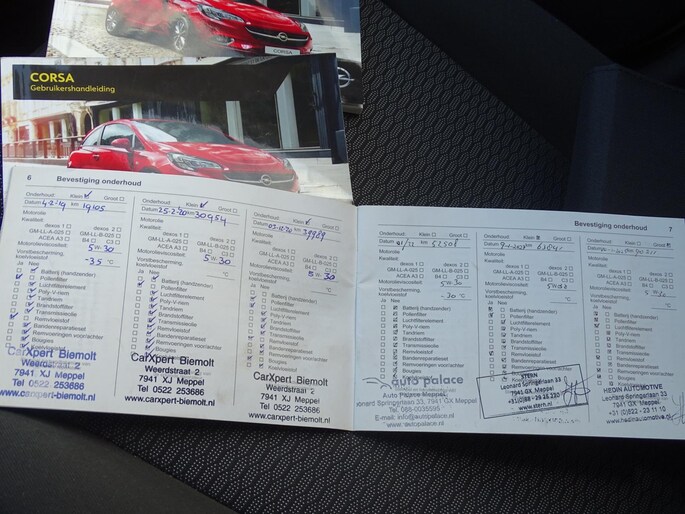 CORSA
CORSA
Gebruikershandleiding
6 Bevestiging onderhoud
Onderhoud: Klein Groot
Datum 4-2-'19 km 19105
Motorolie
Kwaliteit:
dexos 1
GM-LL-A-025 dexos 2
GM-LL-B-025
ACEA A3 B4 C3
Motorolieviscositeit:
5W30
Vorstbescherming,
koelvloeistof
-35 °C
Ja Nee
Batterij (handzender)
Pollenfilter
Luchtfilterelement
Poly-V-riem
Tandriem
Brandstoffilter
Transmissieolie
Remvloeistof
Bandenreparatieset
Remvoeringen voor/achter
Bougies
Koelvloeistof
CarXpert Biemolt
Weerdstraat 2
7941 XJ Meppel
Tel 0522 253686
www.carxpert-biemolt.nl
Onderhoud: Klein Groot
Datum 25-2-'20 km 30954
Motorolie
Kwaliteit:
dexos 1 dexos 2
GM-LL-A-025 GM-LL-B-025
ACEA A3 B4 C3
Motorolieviscositeit:
5W-30
Vorstbescherming,
koelvloeistof
°C
Ja Nee
Batterij (handzender)
Pollenfilter
Luchtfilterelement
Poly-V-riem
Tandriem
Brandstoffilter
Transmissieolie
Remvloeistof
Bandenreparatieset
Remvoeringen voor/achter
Bougies
Koelvloeistof
CarXpert Biemolt
Weerdstraat 2
7941 XJ Meppel
Tel 0522 253686
www.carxpert-biemolt.nl
Onderhoud: Klein Groot
Datum km
Motorolie
Kwaliteit:
dexos 1 dexos 2
GM-LL-A-025 GM-LL-B-025
ACEA A3 B4 C3
Motorolieviscositeit:
5W-30
Vorstbescherming,
koelvloeistof
°C
Ja Nee
Batterij (handzender)
Pollenfilter
Luchtfilterelement
Poly-V-riem
Tandriem
Brandstoffilter
Transmissieolie
Remvloeistof
Bandenreparatieset
Remvoeringen voor/achter
Bougies
CarXpert Biemolt
Weerdstraat 2
7941 XJ Meppel
Tel 0522 253686
www.carxpert-biemolt.nl
Bevestiging onderhoud 7
Onderhoud: Klein Groot
Datum km
Motorolie
Kwaliteit:
dexos 1 dexos 2
GM-LL-A-025 GM-LL-B-025
ACEA A3 B4 C3
Motorolieviscositeit:
5W30
Vorstbescherming,
koelvloeistof
-30 °C
Ja Nee
Batterij (handzender)
Pollenfilter
Luchtfilterelement
Poly-V-riem
Tandriem
Brandstoffilter
Transmissieolie
Remvloeistof
Bandenreparatieset
Remvoeringen voor/achter
auto palace
Auto Palace Meppel
Leonard Springerlaan 33, 7941 GX Meppel
Tel: 088-0035595
E-mail: info@autopalace.nl
www.autopalace.nl
Onderhoud: Klein Groot
Datum km
Motorolie
Kwaliteit:
dexos 1 dexos 2
GM-LL-A-025 GM-LL-B-025
ACEA A3 B4 C3
Motorolieviscositeit:
Vorstbescherming,
koelvloeistof
°C
Ja Nee
Batterij (handzender)
Pollenfilter
Luchtfilterelement
Poly-V-riem
Tandriem
Brandstoffilter
Transmissieolie
Remvloeistof
Bandenreparatieset
Remvoeringen voor/achter
STERN
Leonard Springerlaan 33
7941 GX Meppel
www.stern.nl
Onderhoud: Klein Groot
Datum
Motorolie
Kwaliteit:
dexos 1 dexos 2
GM-LL-A-025 GM-LL-B-025
ACEA A3 B4 C3
Motorolieviscositeit:
Vorstbescherming,
koelvloeistof
°C
Ja Nee
Batterij (handzender)
Pollenfilter
Luchtfilterelement
Poly-V-riem
Tandriem
Brandstoffilter
Transmissieolie
Remvloeistof
Bandenreparatieset
Remvoeringen voor/achter
Bougies
HEDIN AUTOMOTIVE
Leonard Springerlaan 33
7941 GX Meppel
www.hedinautomotive.nl